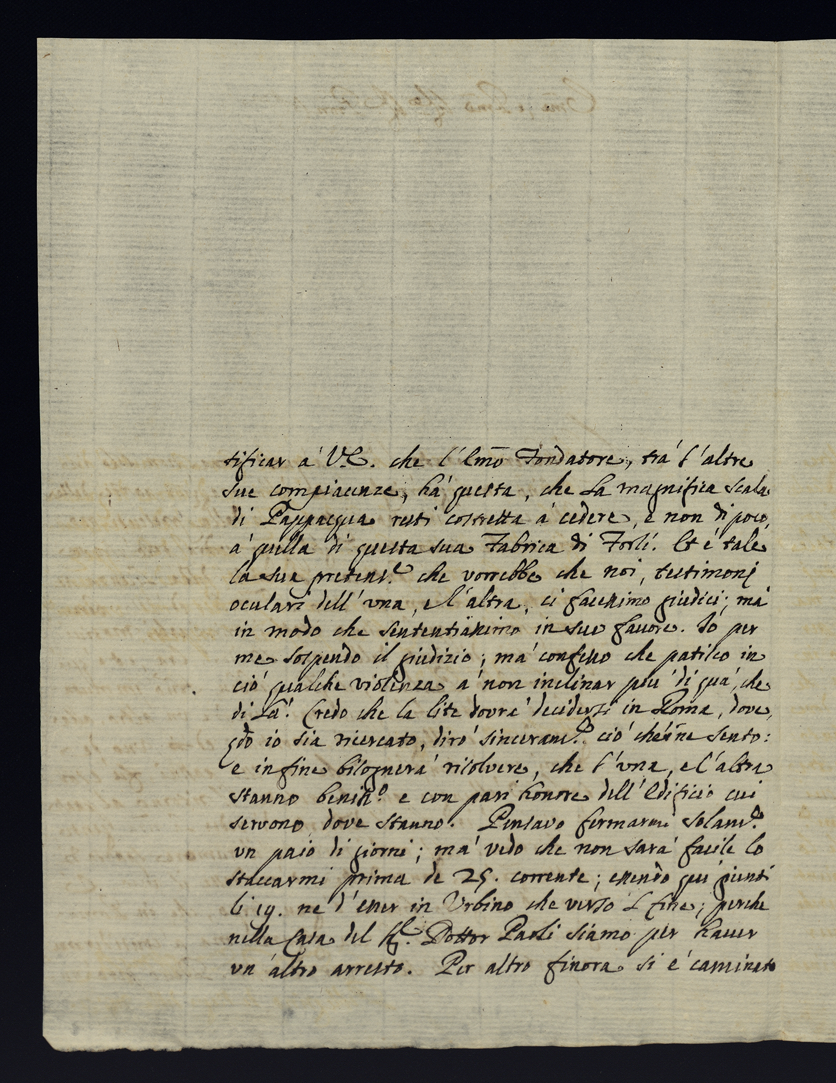 tificar à V.E. che l'Emõ Fondatore, trà l'altre
sue compiacenze, hà questa, che La magnifica scala
di Pappacqua resti costretta à cedere, e non di poco,
à quella di questa sua Fabrica di Forlì. Et è tale
la sua pretens.e che vorrebbe che noi, testimonj
oculari dell'vna, e l'altra, ci facessimo giudici; mà
in modo che sententiassimo in suo favore. Iò per
me sospendo il giudizio; mà confesso che patisco in
ciò qualche violenza à non inclinar più di quà, che
di Là. Credo che la lite dovrà decidersi in Roma, dove,
qdõ io sia ricercato, dirò sinceram.te ciò che ne sento:
e in fine bisognerà risolvere, che l'vna, e l'altra
stanno beniss.o e con pari honore dell'Edificio cui
servono dove stanno. Pensavo fermarmi solam.te
vn paio di giorni; mà vedo che non sarà facile lo
staccarmi prima de 25. corrente; essendo quì giunti
li 19. ne d'esser in Vrbino che verso il fine; perche
nella Casa del Sig.r Dottor Paoli siamo per hauer
vn'altro arresto. Per altro finora si è caminato